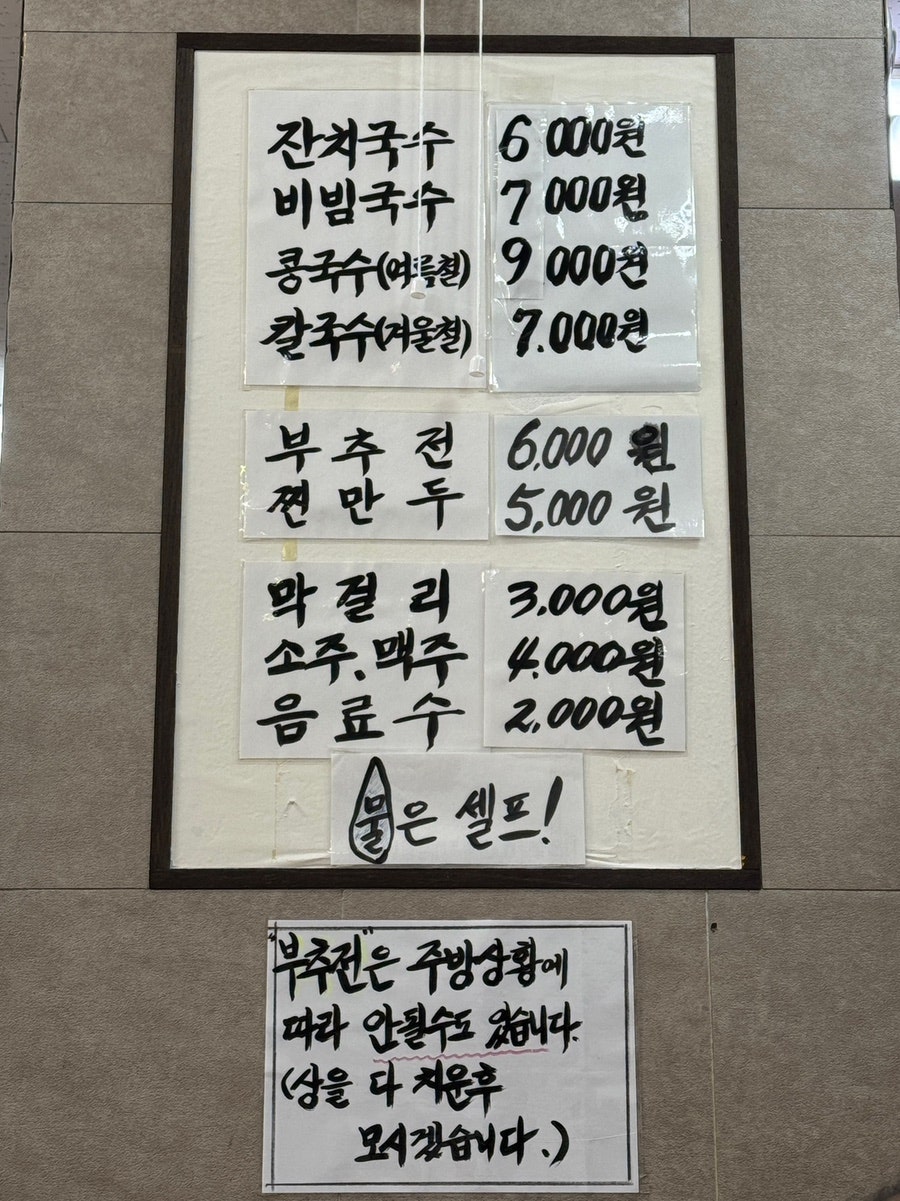 잔치국수 6000원
비빔국수 7000원
콩국수(여름철) 9000원
칼국수(겨울철) 7.000원
부추전 6,000원
찐만두 5,000원
막걸리 3.000원
소주.맥주 4.000원
음료수 2,000원
물은 셀프!
"부추전"은 주방상황에
따라 안될수도 있습니다.
(상을 다 치운후
모시겠습니다.)